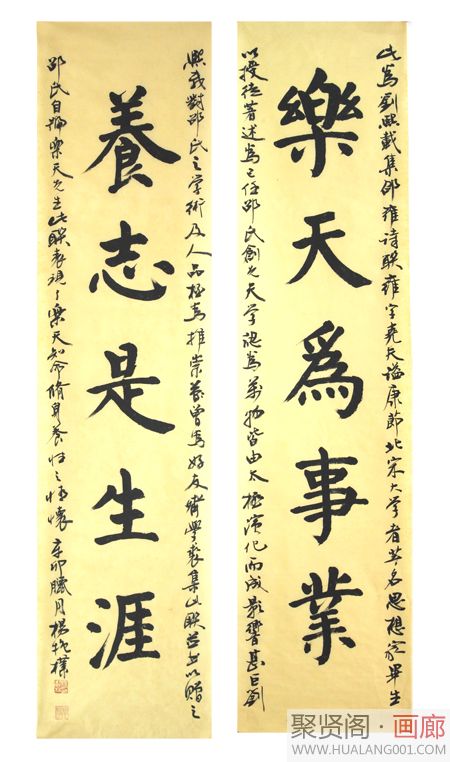 樂天為事業
養志是生涯
此為劉熙載集邵雍詩聯雍字堯夫謚康節北宋大學者著名思想家畢生
以授徒著述為己任邵氏創先天學認為萬物皆由太極演化而成影響甚巨劉
熙載對邵氏之學術及人品極為推崇
邵氏自號樂天先生此聯表現了樂天知命脩身養性之情懷辛卯臘月楊牧樸
聚贤阁·画廊
WWW.HUALANG001.COM